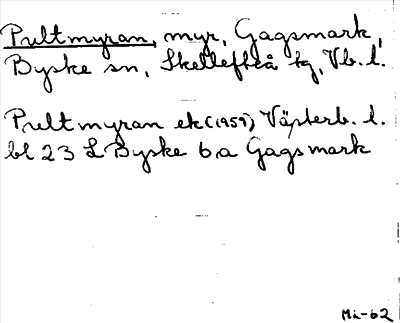 Pultmyran, myr, Gagsmark,
Byske sn, Skellefteå tg, Vb. l.
Pultmyran ek (1959) Västerb. l.
bl 23 L Byske 6a Gagsmark
Mi-62